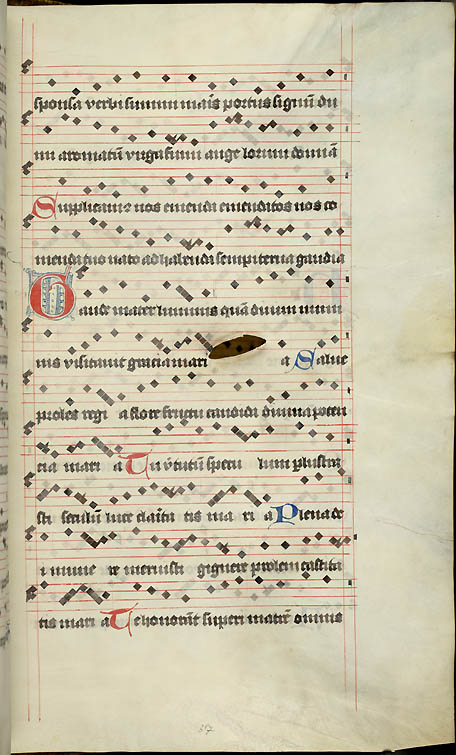 sponsa verbi summi mais portus signū dn
ni aromatū virga fumi ange lorum domina
Supplicam9 nos emenda emendatos nos co
menda tuo nato ad habenda sempiterna gaudia
Gaude mater luminis quā divum numi
nis visitavit gracia mari a Salve
proles regi a flore fructu candida divina poten
tia mari a Tu v̄tutū specu lum plustra
sti seculū luce claīta tis ma ri a Plena de
i mune re meruisti gignere prolem castita
tis mari a Te honorāt superi matrē omnis
37